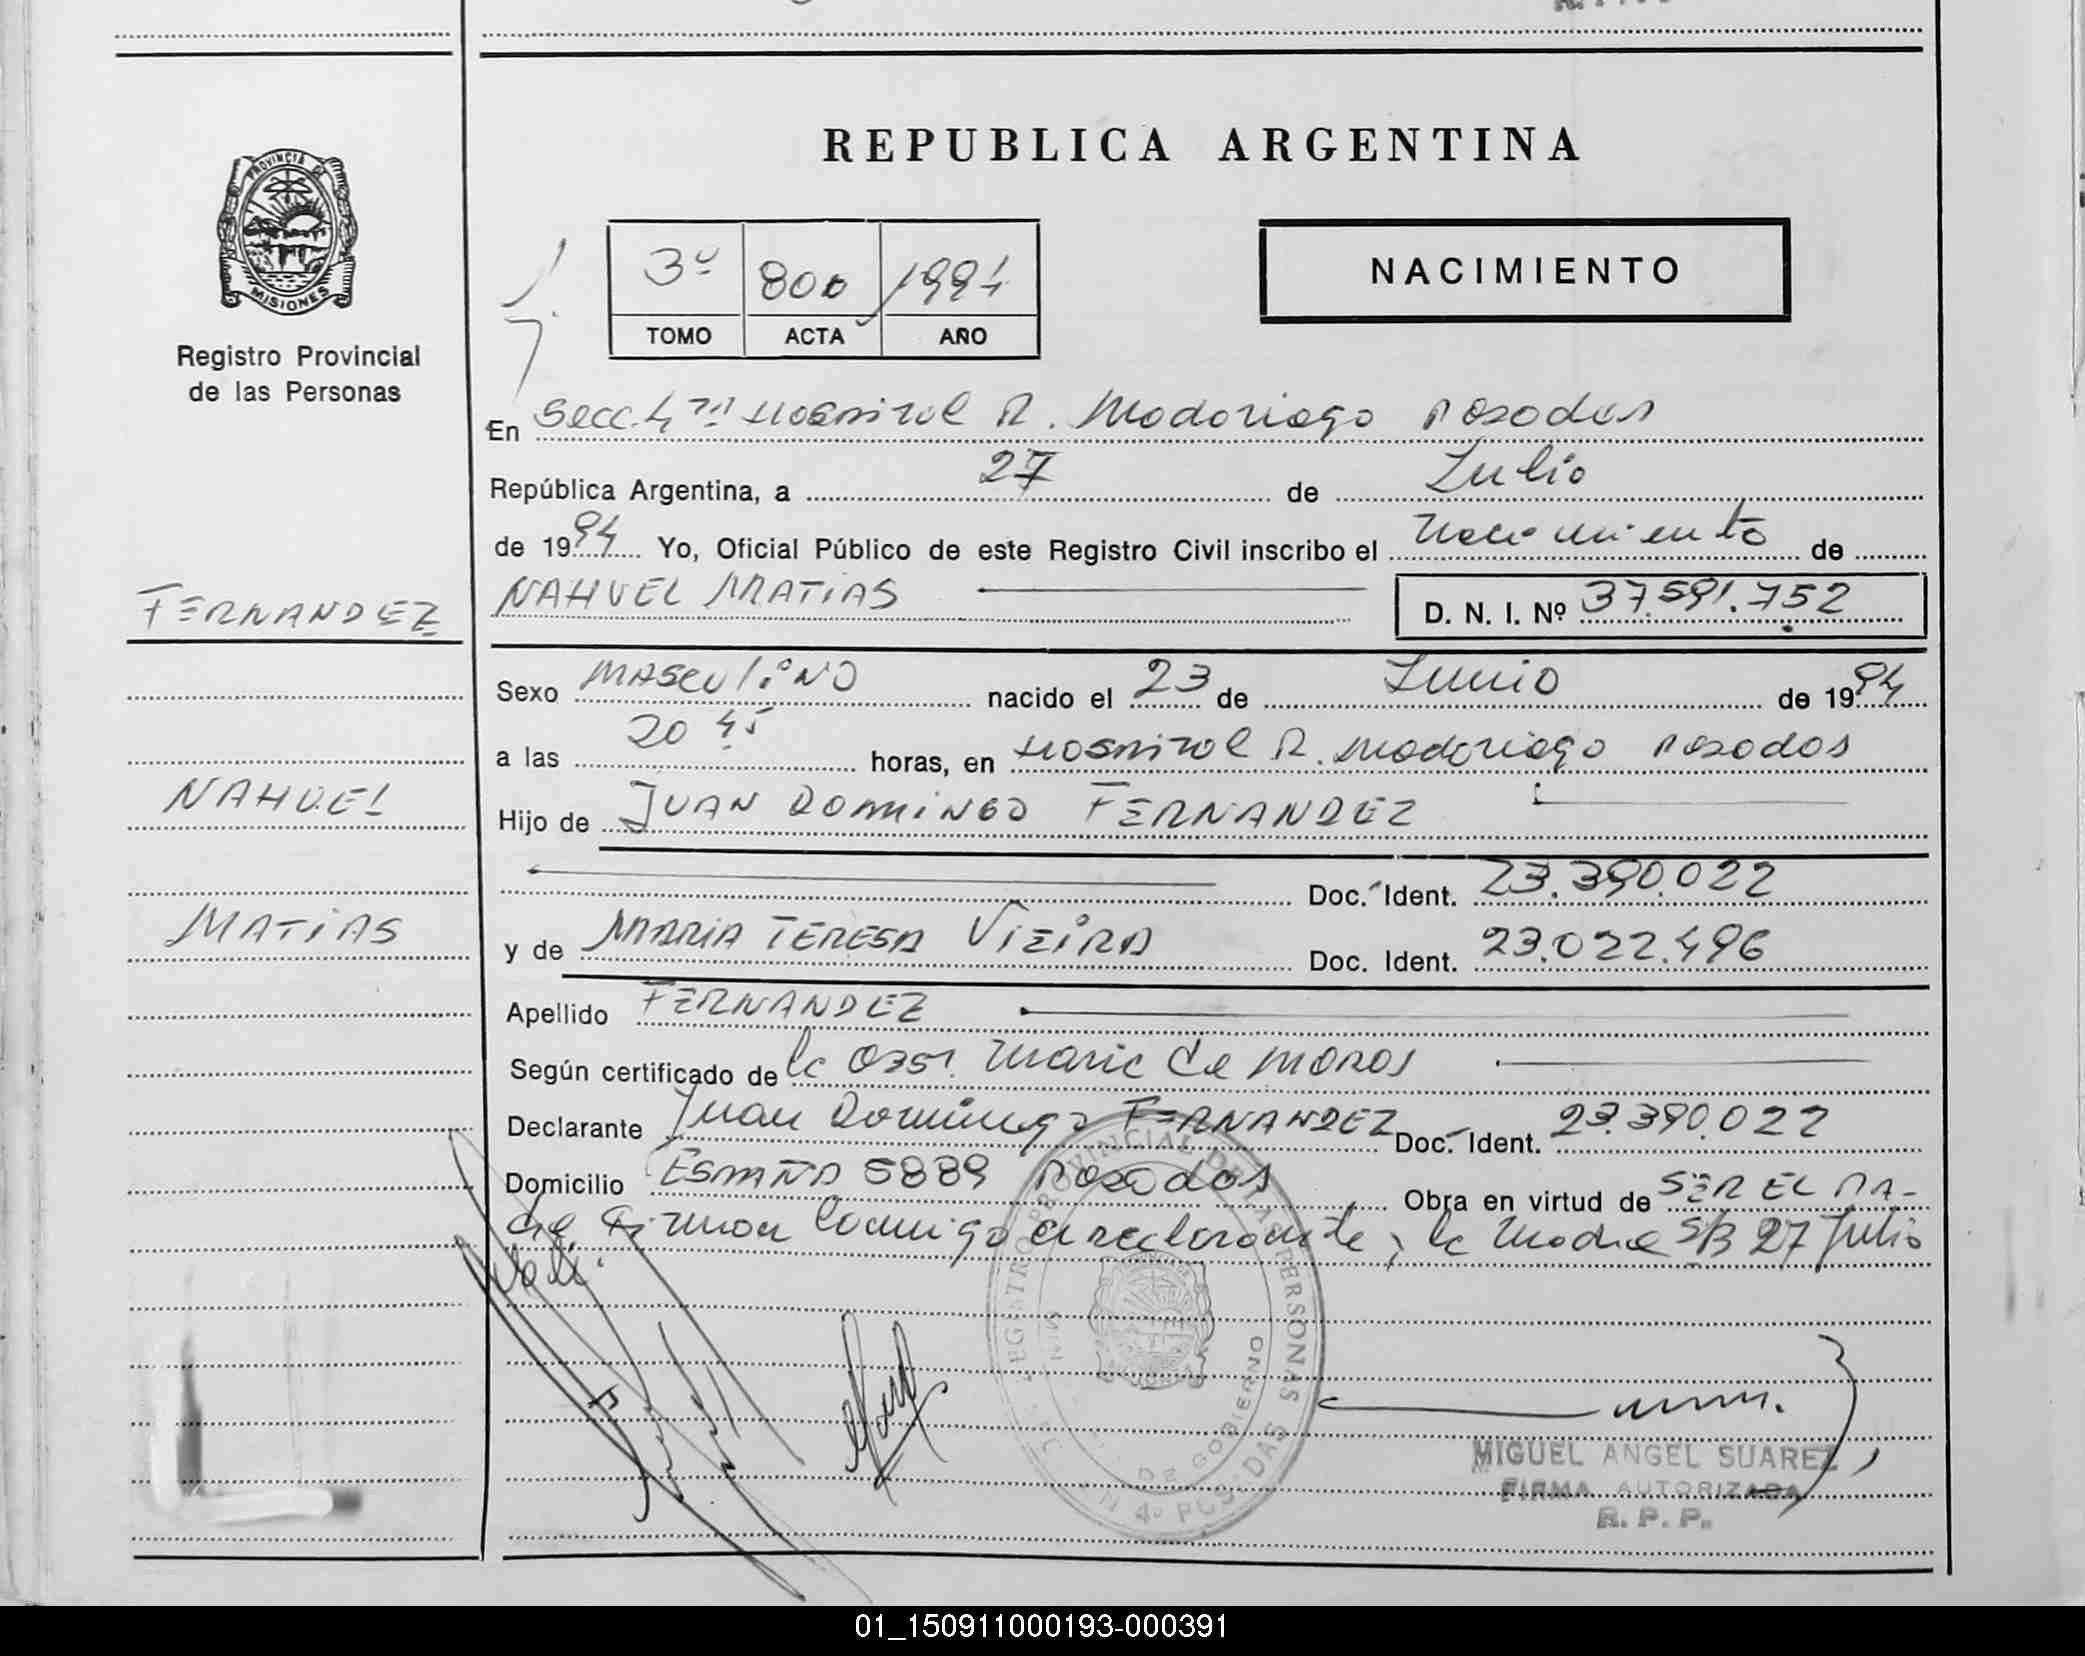 REPUBLICA ARGENTINA
PROVINCIA DE
MISIONES
Registro Provincial
de las Personas
3º 800 1994
TOMO ACTA AÑO
NACIMIENTO
En Secc. 4ta Hospital R. Madariaga Posadas
República Argentina, a 27 de Julio
de 1994 Yo, Oficial Público de este Registro Civil inscribo el Nacimiento de
FERNANDEZ
NAHUEL MATIAS
D. N. I. Nº 37.591.752
Sexo MASCULINO nacido el 23 de Junio de 1994
a las 20 45 horas, en Hospital R. Madariaga Posadas
NAHUEL
Hijo de JUAN DOMINGO FERNANDEZ
Doc. Ident. 23.390.022
MATIAS
y de MARIA TERESA VIEIRA Doc. Ident. 23.022.496
Apellido FERNANDEZ
Según certificado de la Obst. Maria de Moros
Declarante Juan Domingo FERNANDEZ Doc. Ident. 23.390.022
Domicilio ESPAÑA 5889 Posadas Obra en virtud de SER EL PA-
dre Firman conmigo el declarante y la Madre S/B 27 Julio
Vale.
REGISTRO PROVINCIAL DE LAS PERSONAS
DE GOBIERNO
MIGUEL ANGEL SUAREZ
FIRMA AUTORIZADA
R. P. P.
01_150911000193-000391